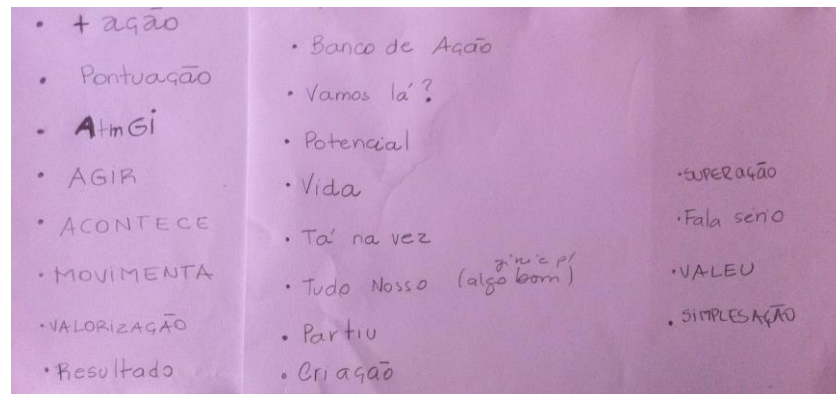 • + ação
• Pontuação
• AtmGi
• AGIR
• ACONTECE
• MOVIMENTA
• VALORIZAÇÃO
• Resultado
• Banco de Ação
• Vamos lá?
• Potencial
• Vida
• Tá na vez
• Tudo Nosso (algo bom)
• Partiu
• Criação
• SUPERação
• Fala sério
• VALEU
• SIMPLESAÇÃO